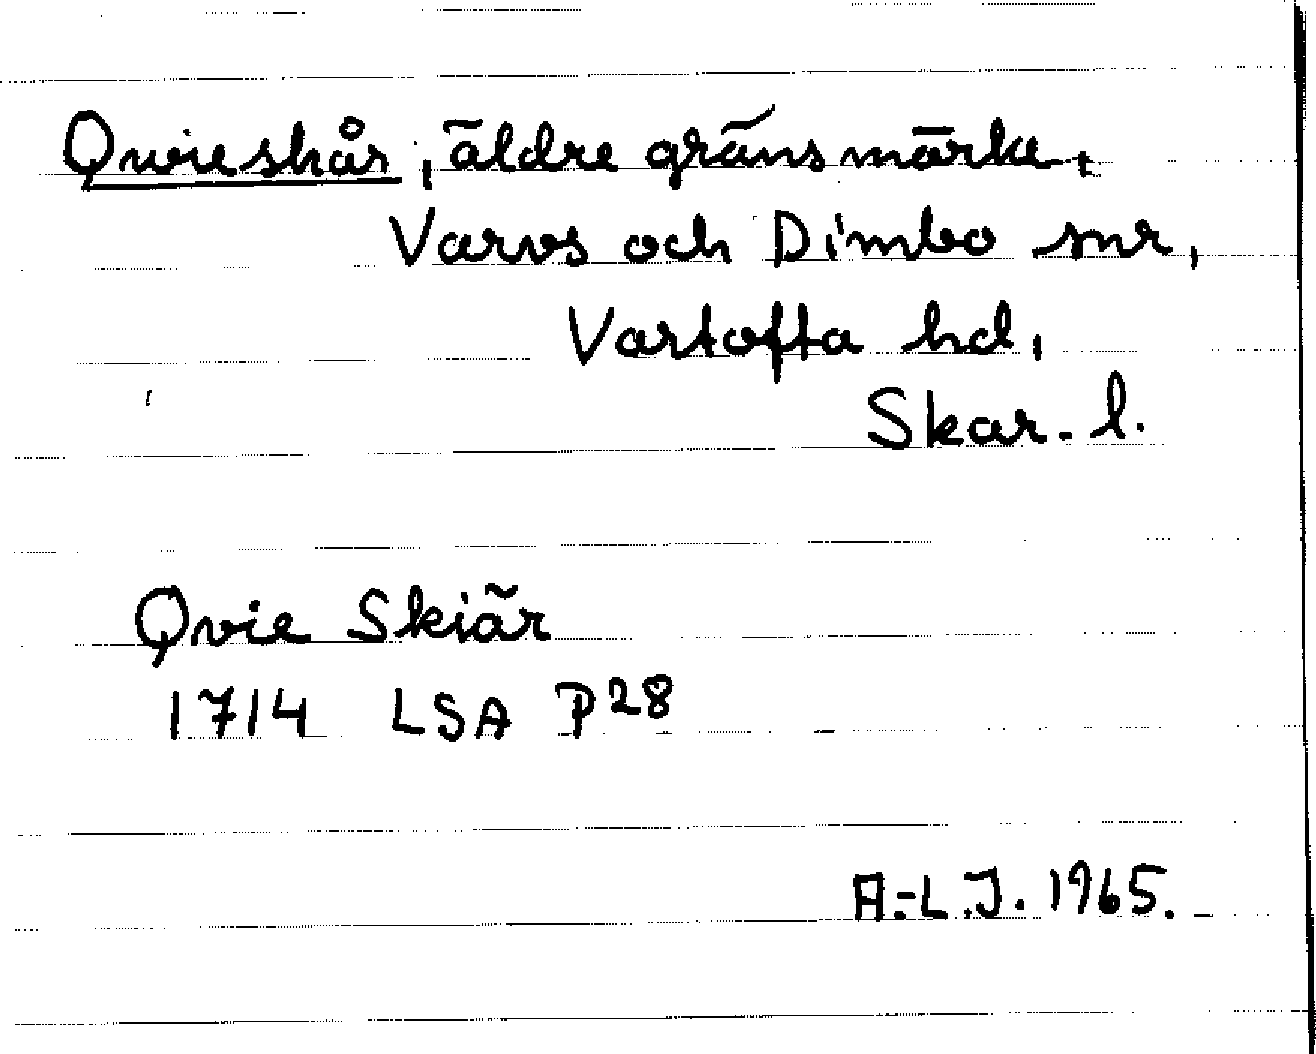 Qvieskår, äldre gränsmärke,
Varvs och Dimbo snr,
Vartofta hd,
Skar. l.
Qvie Skiär
1714 LSA P28
A.-L.J. 1965.